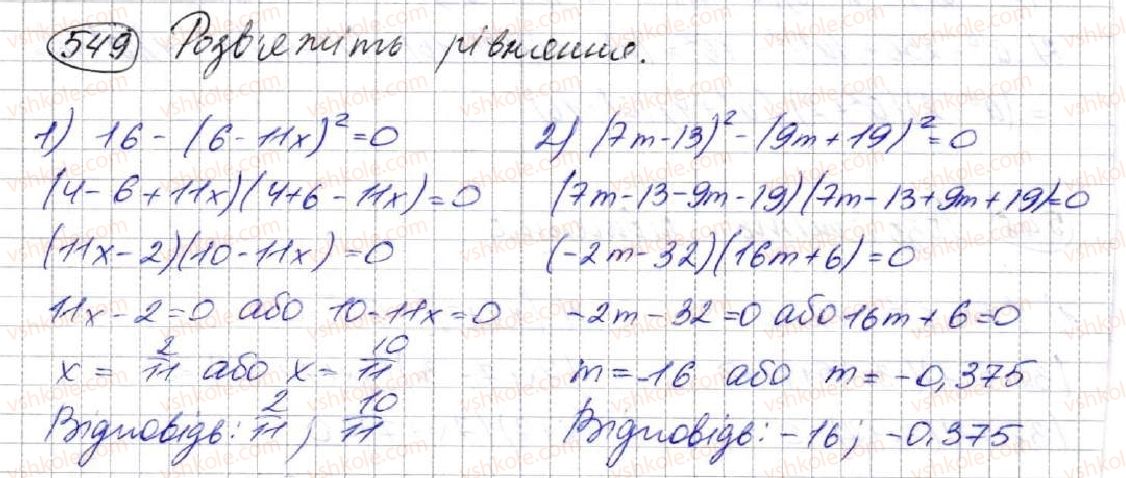 549 Розв'яжіть рівняння.
1) 16 - (6 - 11x)² = 0
(4 - 6 + 11x)(4 + 6 - 11x) = 0
(11x - 2)(10 - 11x) = 0
11x - 2 = 0 або 10 - 11x = 0
x = 2/11 або x = 10/11
Відповідь: 2/11; 10/11
2) (7m - 13)² - (9m + 19)² = 0
(7m - 13 - 9m - 19)(7m - 13 + 9m + 19) = 0
(-2m - 32)(16m + 6) = 0
-2m - 32 = 0 або 16m + 6 = 0
m = -16 або m = -0,375
Відповідь: -16; -0,375